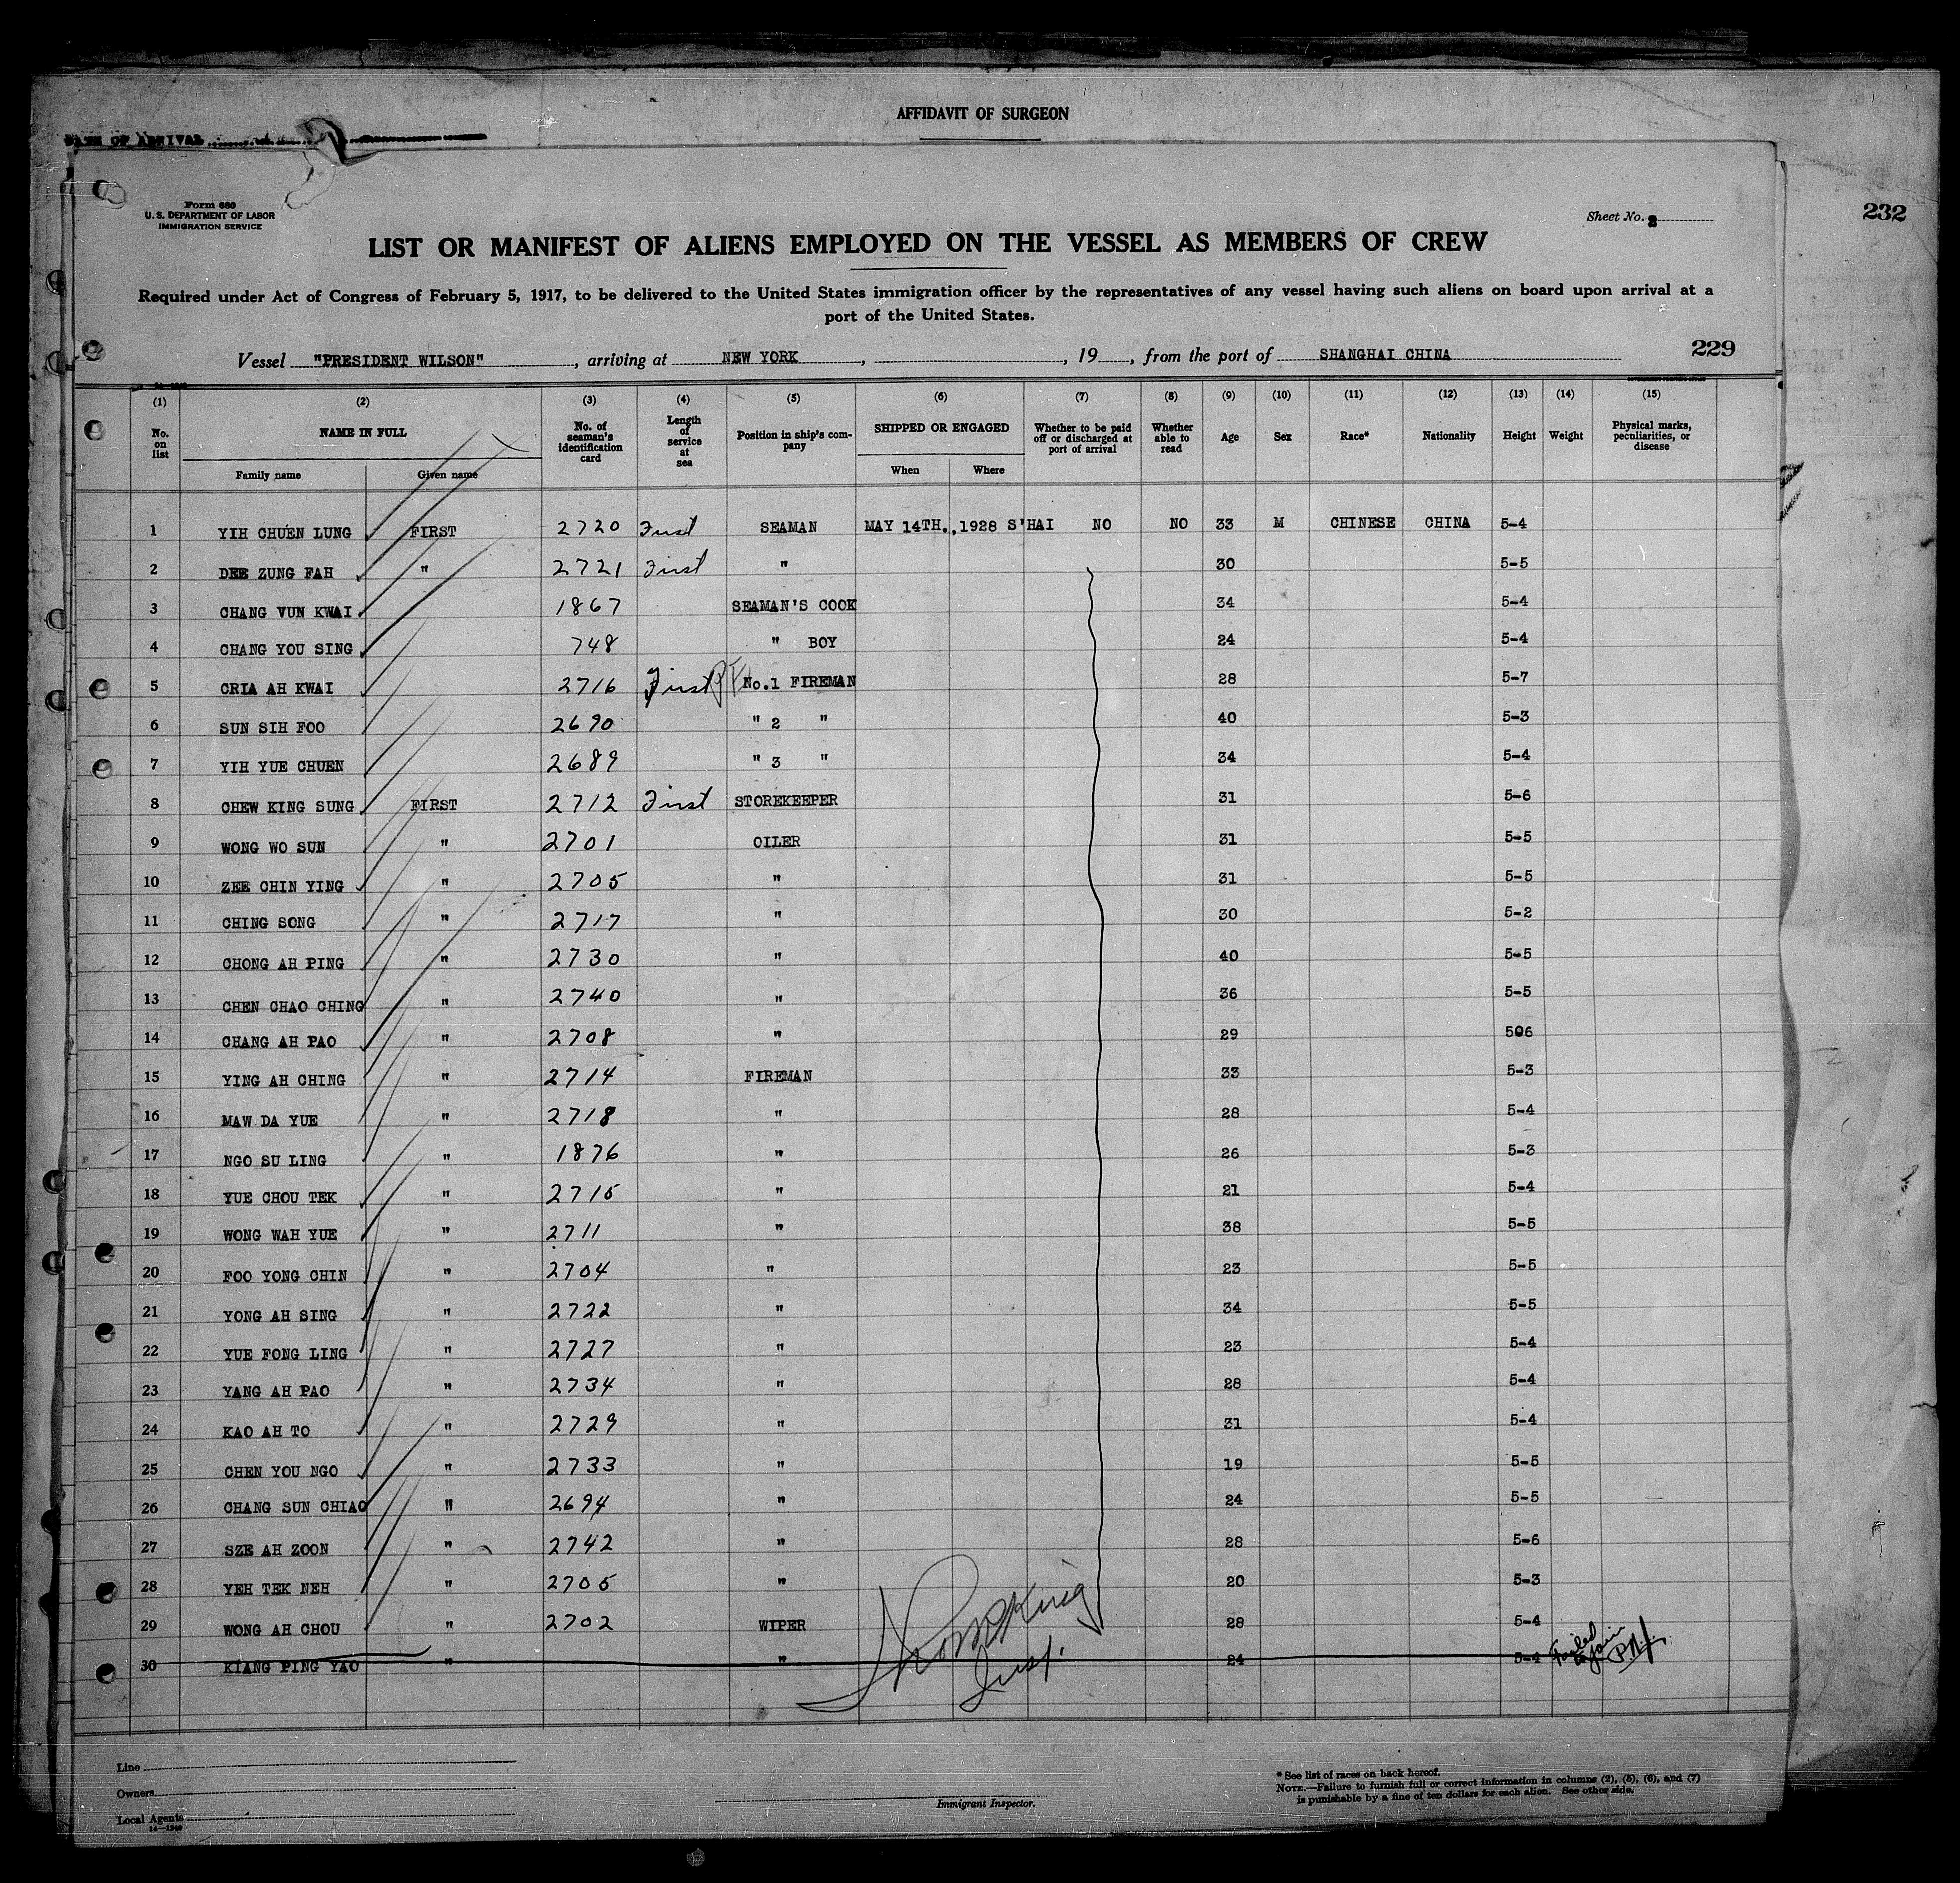 AFFIDAVIT OF SURGEON
DATE OF ARRIVAL
Form 680
U. S. DEPARTMENT OF LABOR
IMMIGRATION SERVICE
Sheet No. 2
232
LIST OR MANIFEST OF ALIENS EMPLOYED ON THE VESSEL AS MEMBERS OF CREW
Required under Act of Congress of February 5, 1917, to be delivered to the United States immigration officer by the representatives of any vessel having such aliens on board upon arrival at a
port of the United States.
Vessel "PRESIDENT WILSON", arriving at NEW YORK, , 19 , from the port of SHANGHAI CHINA 229
(1) (2) (3) (4) (5) (6) (7) (8) (9) (10) (11) (12) (13) (14) (15)
No. on list NAME IN FULL Family name Given name No. of seaman's identification card Length of service at sea Position in ship's company SHIPPED OR ENGAGED When Where Whether to be paid off or discharged at port of arrival Whether able to read Age Sex Race* Nationality Height Weight Physical marks, peculiarities, or disease
1 YIH CHUEN LUNG FIRST 2720 First SEAMAN MAY 14TH., 1928 S'HAI NO NO 33 M CHINESE CHINA 5-4
2 DEE ZUNG FAH " 2721 First " 30 5-5
3 CHANG VUN KWAI 1867 SEAMAN'S COOK 34 5-4
4 CHANG YOU SING 748 " BOY 24 5-4
5 CRIA AH KWAI 2716 First No.1 FIREMAN 28 5-7
6 SUN SIH FOO 2690 " 2 " 40 5-3
7 YIH YUE CHUEN 2689 " 3 " 34 5-4
8 CHEW KING SUNG FIRST 2712 First STOREKEEPER 31 5-6
9 WONG WO SUN " 2701 OILER 31 5-5
10 ZEE CHIN YING " 2705 " 31 5-5
11 CHING SONG " 2717 " 30 5-2
12 CHONG AH PING " 2730 " 40 5-5
13 CHEN CHAO CHING " 2740 " 36 5-5
14 CHANG AH PAO " 2708 " 29 506
15 YING AH CHING " 2714 FIREMAN 33 5-3
16 MAW DA YUE " 2718 " 28 5-4
17 NGO SU LING " 1876 " 26 5-3
18 YUE CHOU TEK " 2715 " 21 5-4
19 WONG WAH YUE " 2711 " 38 5-5
20 FOO YONG CHIN " 2704 " 23 5-5
21 YONG AH SING " 2722 " 34 5-5
22 YUE FONG LING " 2727 " 23 5-4
23 YANG AH PAO " 2734 " 28 5-4
24 KAO AH TO " 2729 " 31 5-4
25 CHEN YOU NGO " 2733 " 19 5-5
26 CHANG SUN CHIAO " 2694 " 24 5-5
27 SZE AH ZOON " 2742 " 28 5-6
28 YEH TEK NEH " 2705 " 20 5-3
29 WONG AH CHOU " 2702 WIPER 28 5-4
30 KIANG PING YAO " " 24 5-4 Failed to join
Insp.
Line
Owners
Local Agents
14—1940
Immigrant Inspector.
* See list of races on back hereof.
NOTE.—Failure to furnish full or correct information in columns (2), (5), (6), and (7)
is punishable by a fine of ten dollars for each alien. See other side.